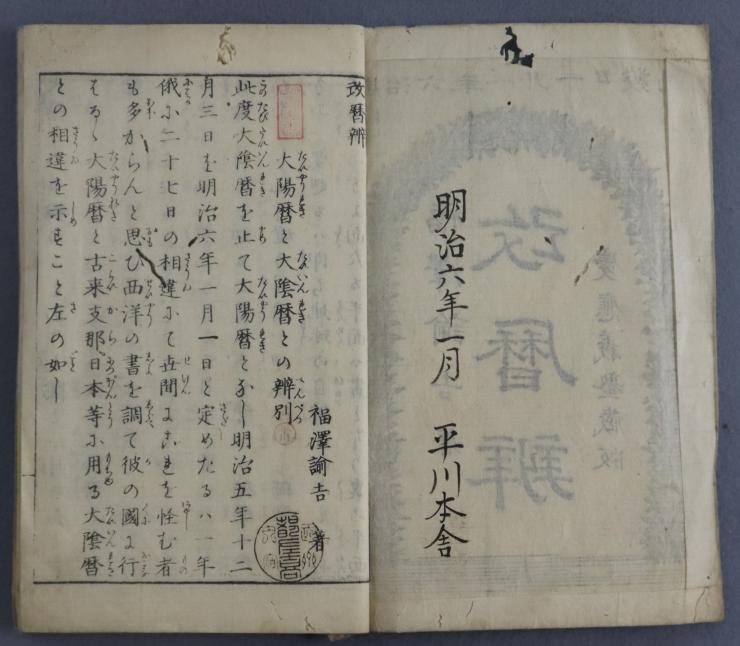 明治六年一月　平川本舎
改暦辨
福澤諭吉　著
大陽暦と大陰暦との辨別
此度大陰暦を止て大陽暦となし明治五年十二
月三日を明治六年一月一日と定めたるハ一年
俄に二十七日の相違にて世間にこれを怪む者
も多からんと思ひ西洋の書を調て彼の國に行
はるゝ大陽暦と古来支那日本等に用る大陰暦
との相違を示すこと左の如し